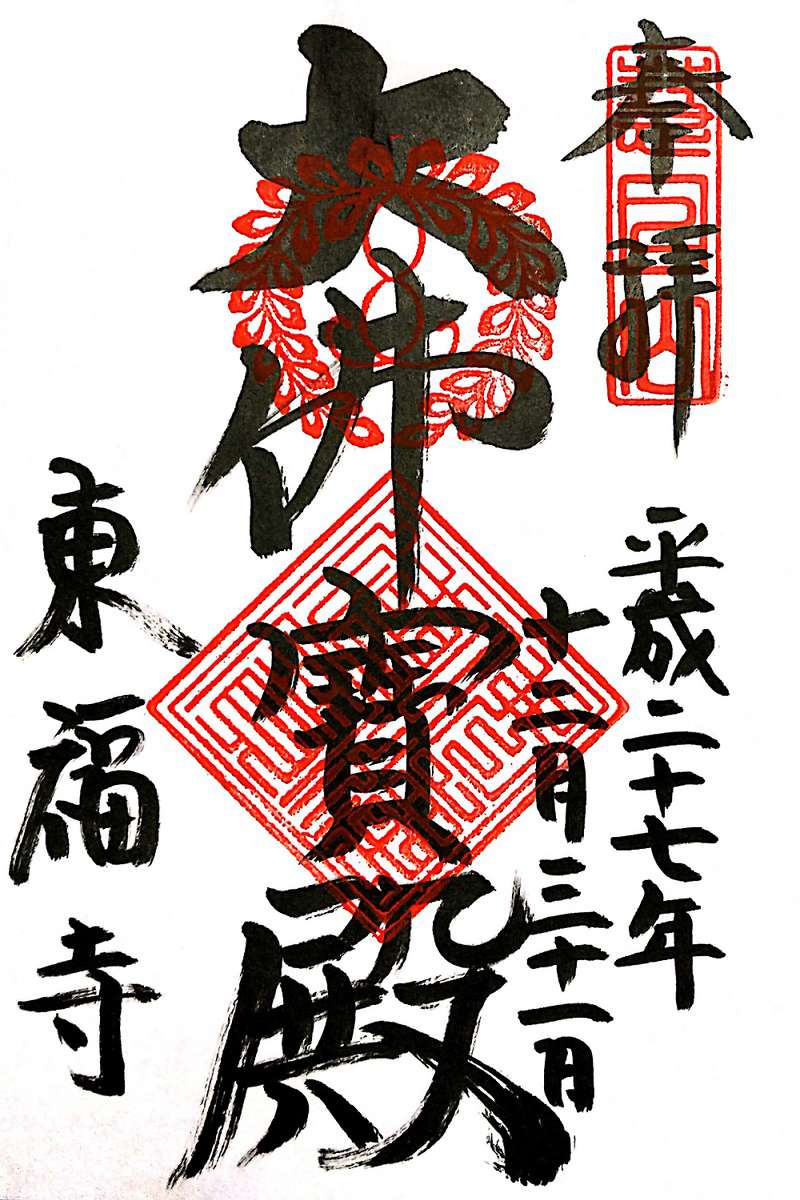 奉拝
平成二十七年
十二月三十一日
大佛寳殿
東福寺